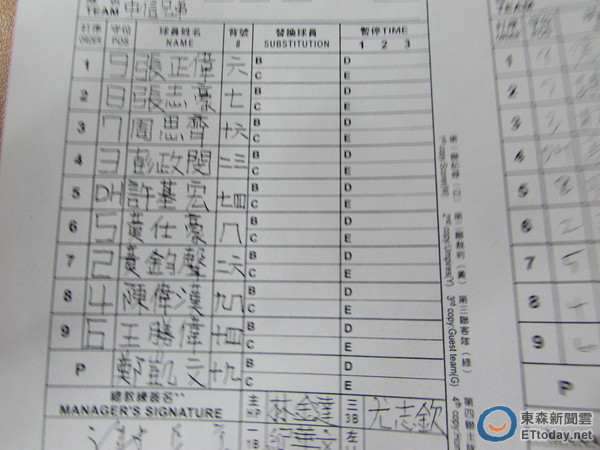 TEAM 中信兄弟
打序 ORDER 守位 POS 球員姓名 NAME 背號 # 替換球員 SUBSTITUTION 暫停TIME 1 2 3
1 9 張正偉 六 B C D E
2 8 張志豪 七 B C D E
3 7 周思齊 十六 B C D E
4 3 彭政閔 二三 B C D E
5 DH 許基宏 七四 B C D E
6 5 黃仕豪 八 B C D E
7 2 黃鈞聲 二六 B C D E
8 4 陳偉漢 九八 B C D E
9 6 王勝偉 十四 B C D E
P 鄭凱文 十九 B C D E
總教練簽名**
MANAGER'S SIGNATURE
主HP 林金達 三3B 尤志欽
一1B 紀華文 左
第一聯紀錄(白) 1st copy Scorer(W) 第二聯裁判(黃) 2nd copy Umpires(Y) 第三聯客隊(綠) 3rd copy Guest team(G) 第四聯主隊 4th copy Hom
TEAM
1
2
3
4
5
6
7
8
9
P
東森新聞雲
ETtoday.net